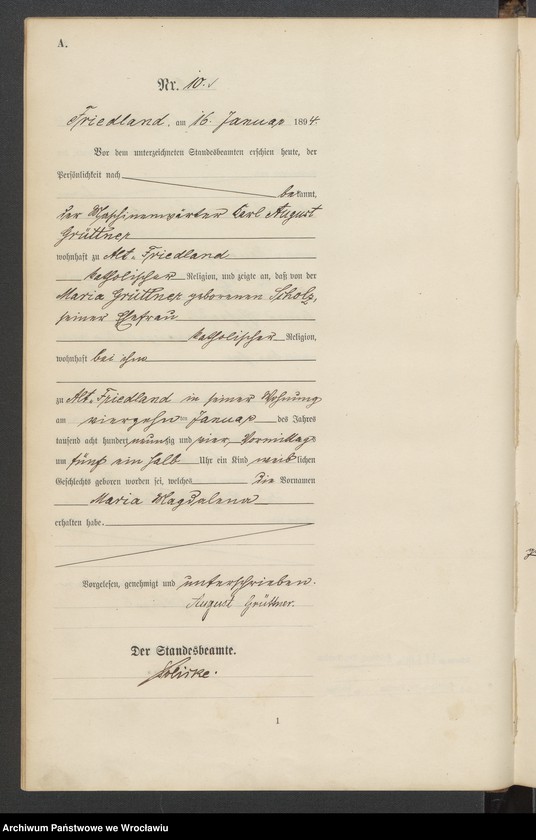 A.
Nr. 10.
Friedland, am 16. Januar 1894.
Vor dem unterzeichneten Standesbeamten erschien heute, der
Persönlichkeit nach
bekannt,
der Maschinenwärter Carl August
Grüttner
wohnhaft zu Alt-Friedland
katholischer Religion, und zeigte an, daß von der
Maria Grüttner geborenen Scholz,
seiner Ehefrau
katholischer Religion,
wohnhaft bei ihm
zu Alt-Friedland in seiner Wohnung
am vierzehnten Januar des Jahres
tausend acht hundert neunzig und vier, Vormittags
um fünf ein halb Uhr ein Kind weiblichen
Geschlechts geboren worden sei, welches die Vornamen
Maria Magdalena
erhalten habe.
Vorgelesen, genehmigt und unterschrieben.
August Grüttner.
Der Standesbeamte.
1
Archiwum Państwowe we Wrocławiu